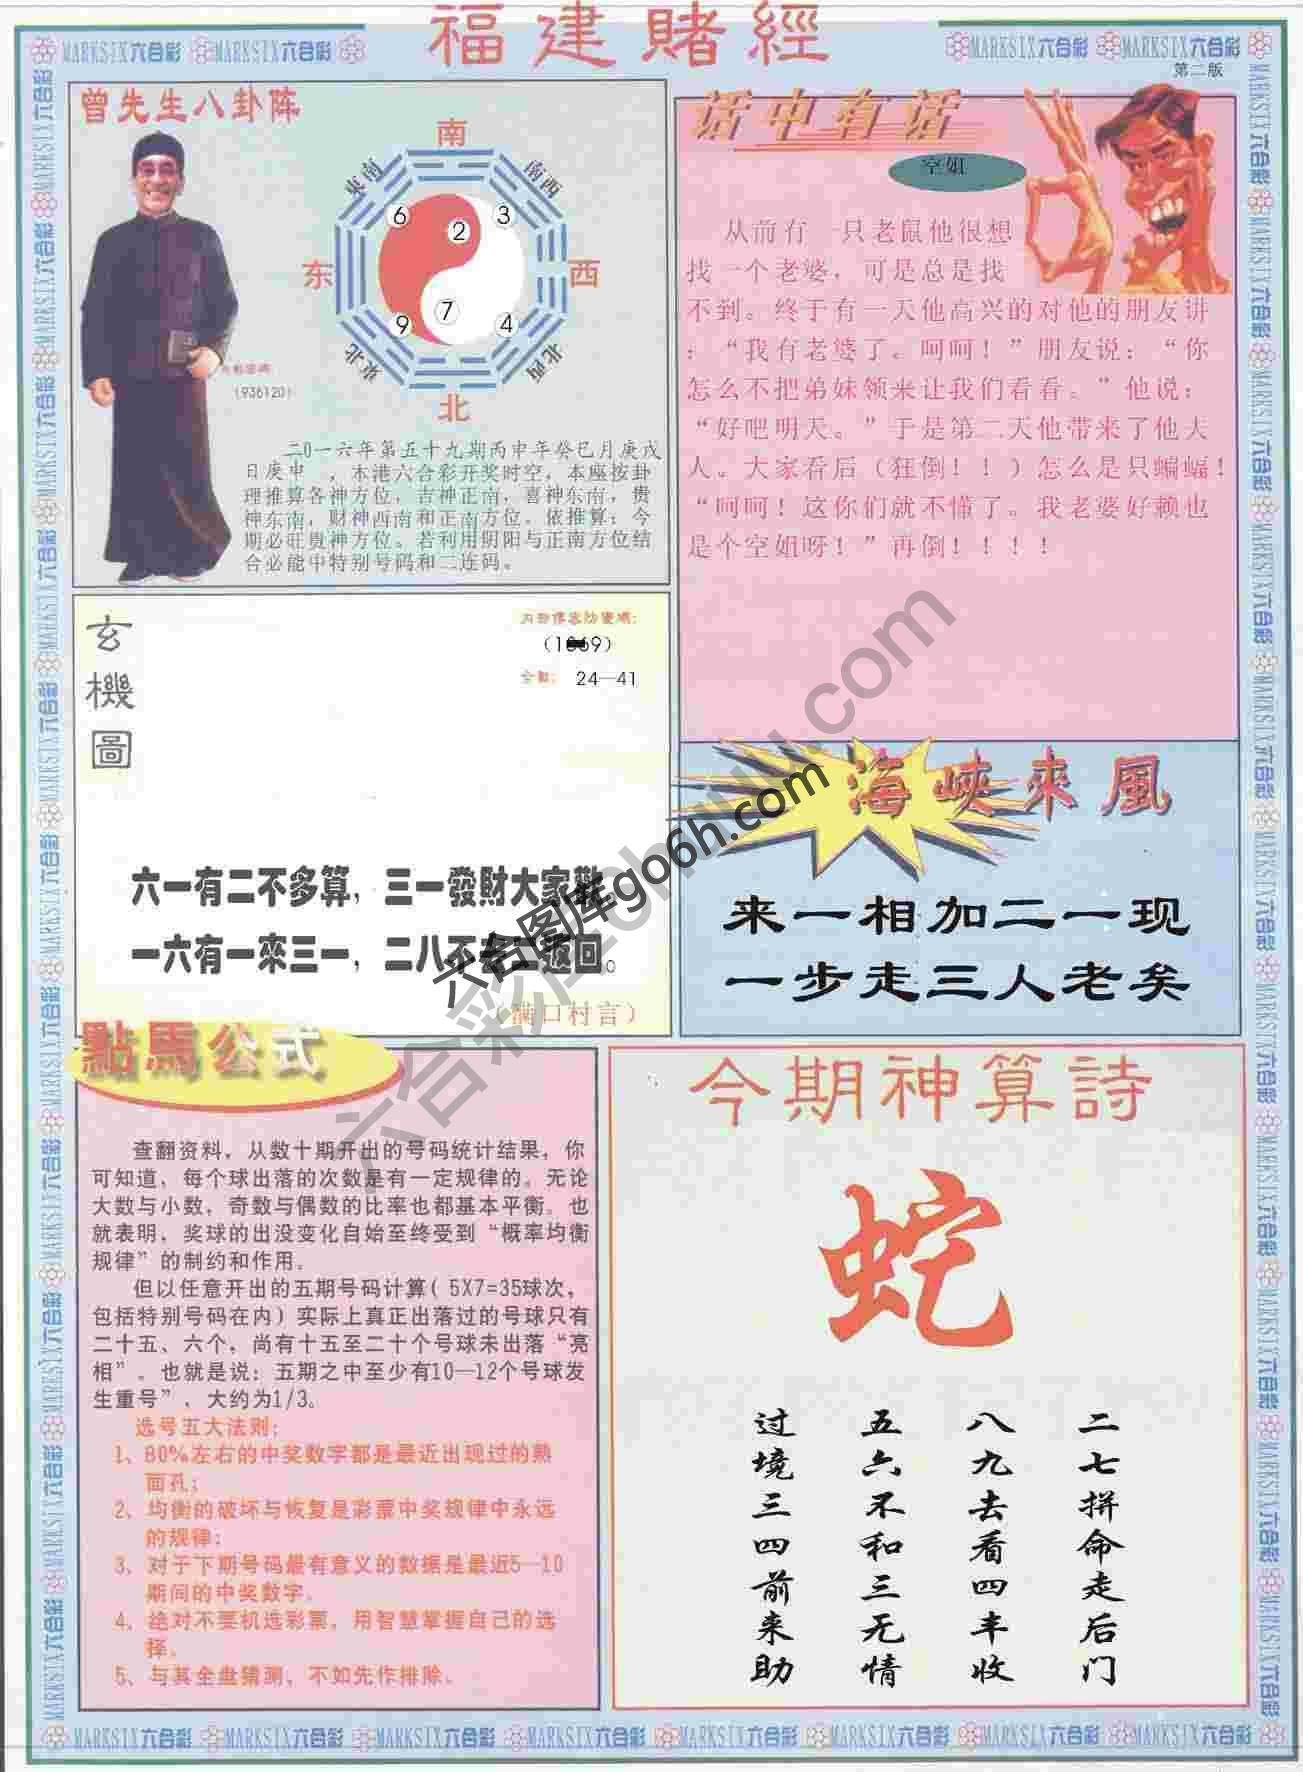 福建賭經
MARKSIX六合彩 MARKSIX六合彩 MARKSIX六合彩 MARKSIX六合彩
第二版
曾先生八卦阵
南
東南
南西
6
3
2
东
西
7
9
4
東北
北西
北
(936120)
二0一六年第五十九期丙申年癸巳月庚戌
日庚申 ，本港六合彩开奖时空，本座按卦
理推算各神方位，吉神正南，喜神东南，贵
神东南，财神西南和正南方位。依推算：今
期必旺贵神方位。若利用阴阳与正南方位结
合必能中特别号码和二连码。
话中有话
空姐
从前有一只老鼠他很想
找一个老婆，可是总是找
不到。终于有一天他高兴的对他的朋友讲
：“我有老婆了。呵呵！”朋友说：“你
怎么不把弟妹领来让我们看看。”他说：
“好吧明天。”于是第二天他带来了他夫
人。大家看后（狂倒！！）怎么是只蝙蝠！
“呵呵！这你们就不懂了。我老婆好赖也
是个空姐呀！”再倒！！！！
玄機圖
24—41
六一有二不多算，三一發財大家歡。
一六有一來三一，二八不去二返回。
海峡來風
来一相加二一现
一步走三人老矣
點馬公式
查翻资料，从数十期开出的号码统计结果，你
可知道，每个球出落的次数是有一定规律的。无论
大数与小数，奇数与偶数的比率也都基本平衡。也
就表明，奖球的出没变化自始至终受到“概率均衡
规律”的制约和作用。
但以任意开出的五期号码计算（5X7=35球次，
包括特别号码在内）实际上真正出落过的号球只有
二十五、六个，尚有十五至二十个号球未出落“亮
相”。也就是说：五期之中至少有10—12个号球发
生重号”，大约为1/3。
选号五大法则：
1、80%左右的中奖数字都是最近出现过的熟
面孔；
2、均衡的破坏与恢复是彩票中奖规律中永远
的规律；
3、对于下期号码最有意义的数据是最近5—10
期间的中奖数字。
4、绝对不要机选彩票，用智慧掌握自己的选
择。
5、与其全盘猜测，不如先作排除。
今期神算詩
蛇
二七拼命走后门
八九去看四丰收
五六不和三无情
过境三四前来助
六合图库go6h.com
MARKSIX六合彩 MARKSIX六合彩 MARKSIX六合彩 MARKSIX六合彩 MARKSIX六合彩 MARKSIX六合彩 MARKSIX六合彩 MARKSIX六合彩